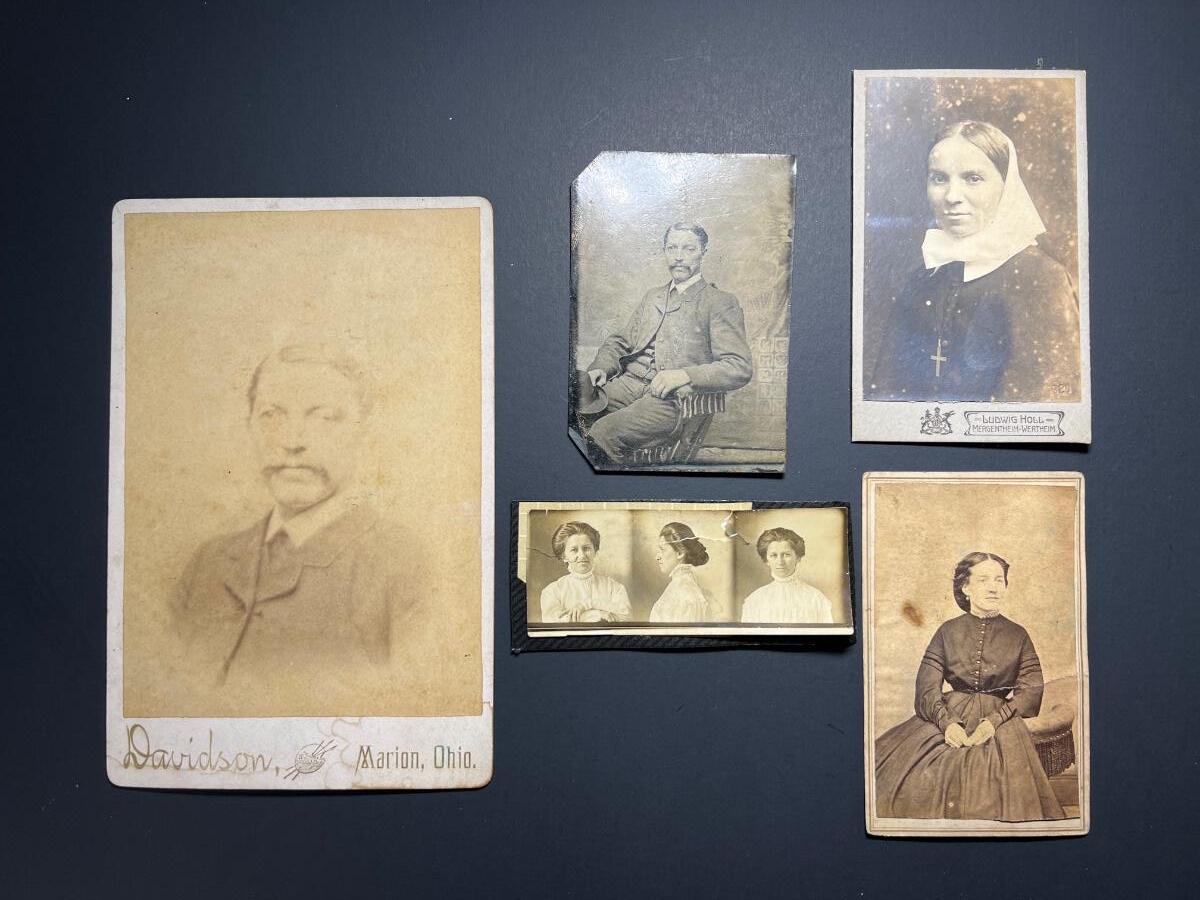 Davidson, Marion, Ohio.
LUDWIG HOLL
MERGENTHEIM-WERTHEIM